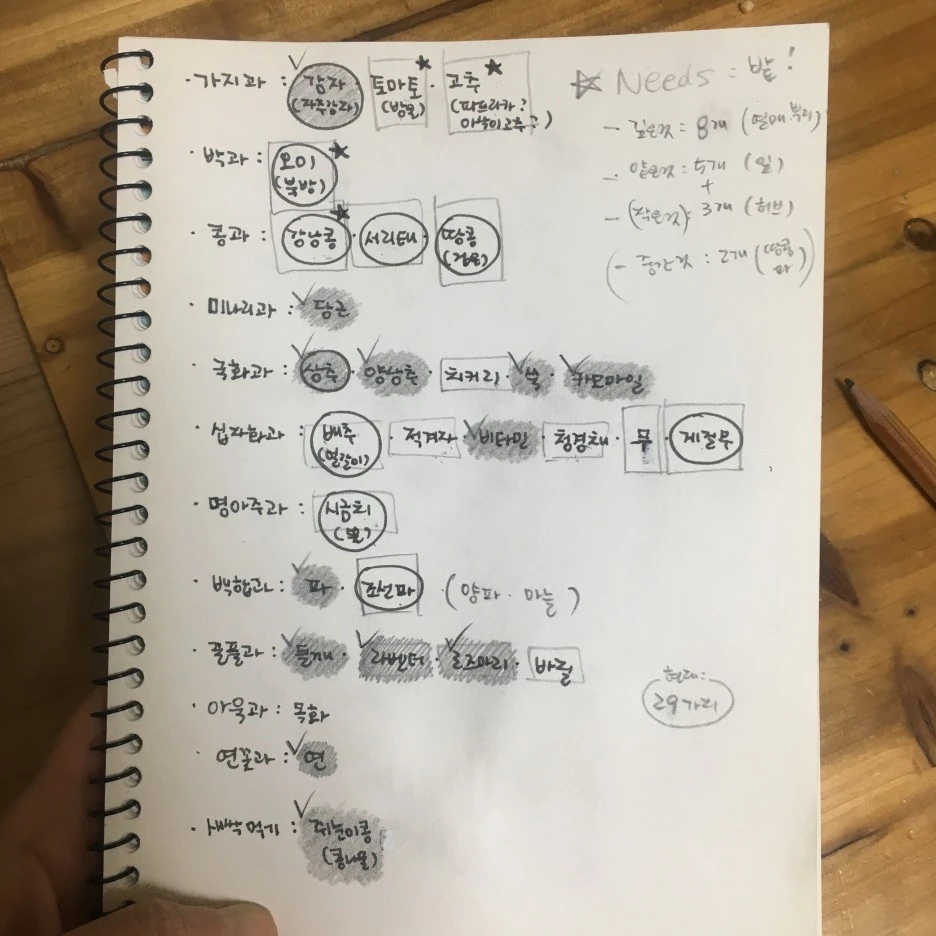 · 가지과 : 감자 · 토마토 · 고추
(자주감자) (방울) (파프리카?
아삭이고추?)
· 박과 : 오이
(북방)
· 콩과 : 강낭콩 · 서리태 · 땅콩
(검은)
· 미나리과 : 당근
· 국화과 : 상추 · 양상추 · 치커리 · 쑥 · 카모마일
· 십자화과 : 배추 · 적겨자 · 비타민 · 청경채 · 무 · 게걸무
(얼갈이)
· 명아주과 : 시금치
· 백합과 : 파 · 조선파 · (양파 · 마늘)
· 꿀풀과 : 들깨 · 라벤더 · 로즈마리 · 바질
· 아욱과 : 목화
· 연꽃과 : 연
· 새싹먹기 : 쥐눈이콩
(콩나물)
☆ Needs : 밭!
- 깊은것 : 8개 (열매 뿌리)
- 얕은것 : 5개 (잎)
+
- (작은것) : 3개 (허브)
(- 중간것 : 2개 (땅콩
파))
현재:
29가지